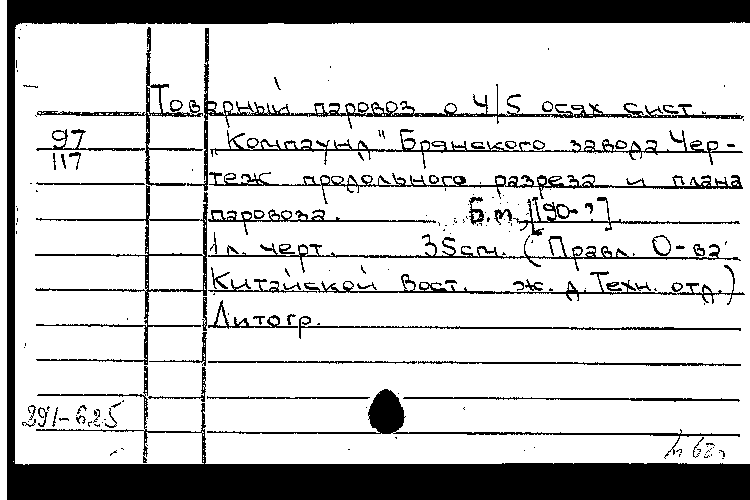 Товарный паровоз о 4/5 осях сист.
97 „Компаунд" Брянского завода Чер-
117
теж продольного разреза и плана
паровоза. Б.м., [190-?].
1 л. черт. 35 см. (Правл. О-ва
Китайской Вост. ж. д. Техн. отд.)
Литогр.
291-625